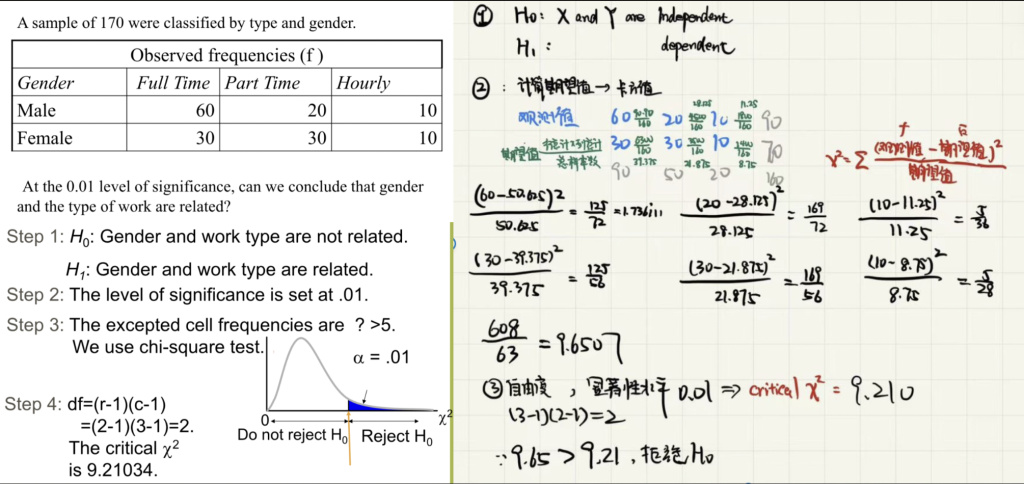 A sample of 170 were classified by type and gender.
Observed frequencies (f )
Gender Full Time Part Time Hourly
Male 60 20 10
Female 30 30 10
At the 0.01 level of significance, can we conclude that gender
and the type of work are related?
Step 1: H₀: Gender and work type are not related.
H₁: Gender and work type are related.
Step 2: The level of significance is set at .01.
Step 3: The excepted cell frequencies are ? >5.
We use chi-square test.
α = .01
0 χ²
Do not reject H₀ Reject H₀
Step 4: df=(r-1)(c-1)
=(2-1)(3-1)=2.
The critical χ²
is 9.21034.
① H₀: X and Y are independent
H₁: dependent
②: 计算期望值→卡方值
28.125 11.25
观测值 60 90·90/160 20 4500/160 10 1800/160 90
期望值 行总计×列总计/总样本数 30 6300/160 30 3500/160 10 1400/160 70
39.375 21.875 8.75
90 50 20 160
χ²=Σ (观测值-期望值)²/期望值
(60-50.625)²/50.625 = 125/72 =1.736111 (20-28.125)²/28.125 = 169/72 (10-11.25)²/11.25 = 5/36
(30-39.375)²/39.375 = 125/56 (30-21.875)²/21.875 = 169/56 (10-8.75)²/8.75 = 5/28
608/63 = 9.6507
③ 自由度, 显著性水平 0.01 ⇒ critical χ² = 9.210
(3-1)(2-1)=2
∵ 9.65 > 9.21, 拒绝 H₀